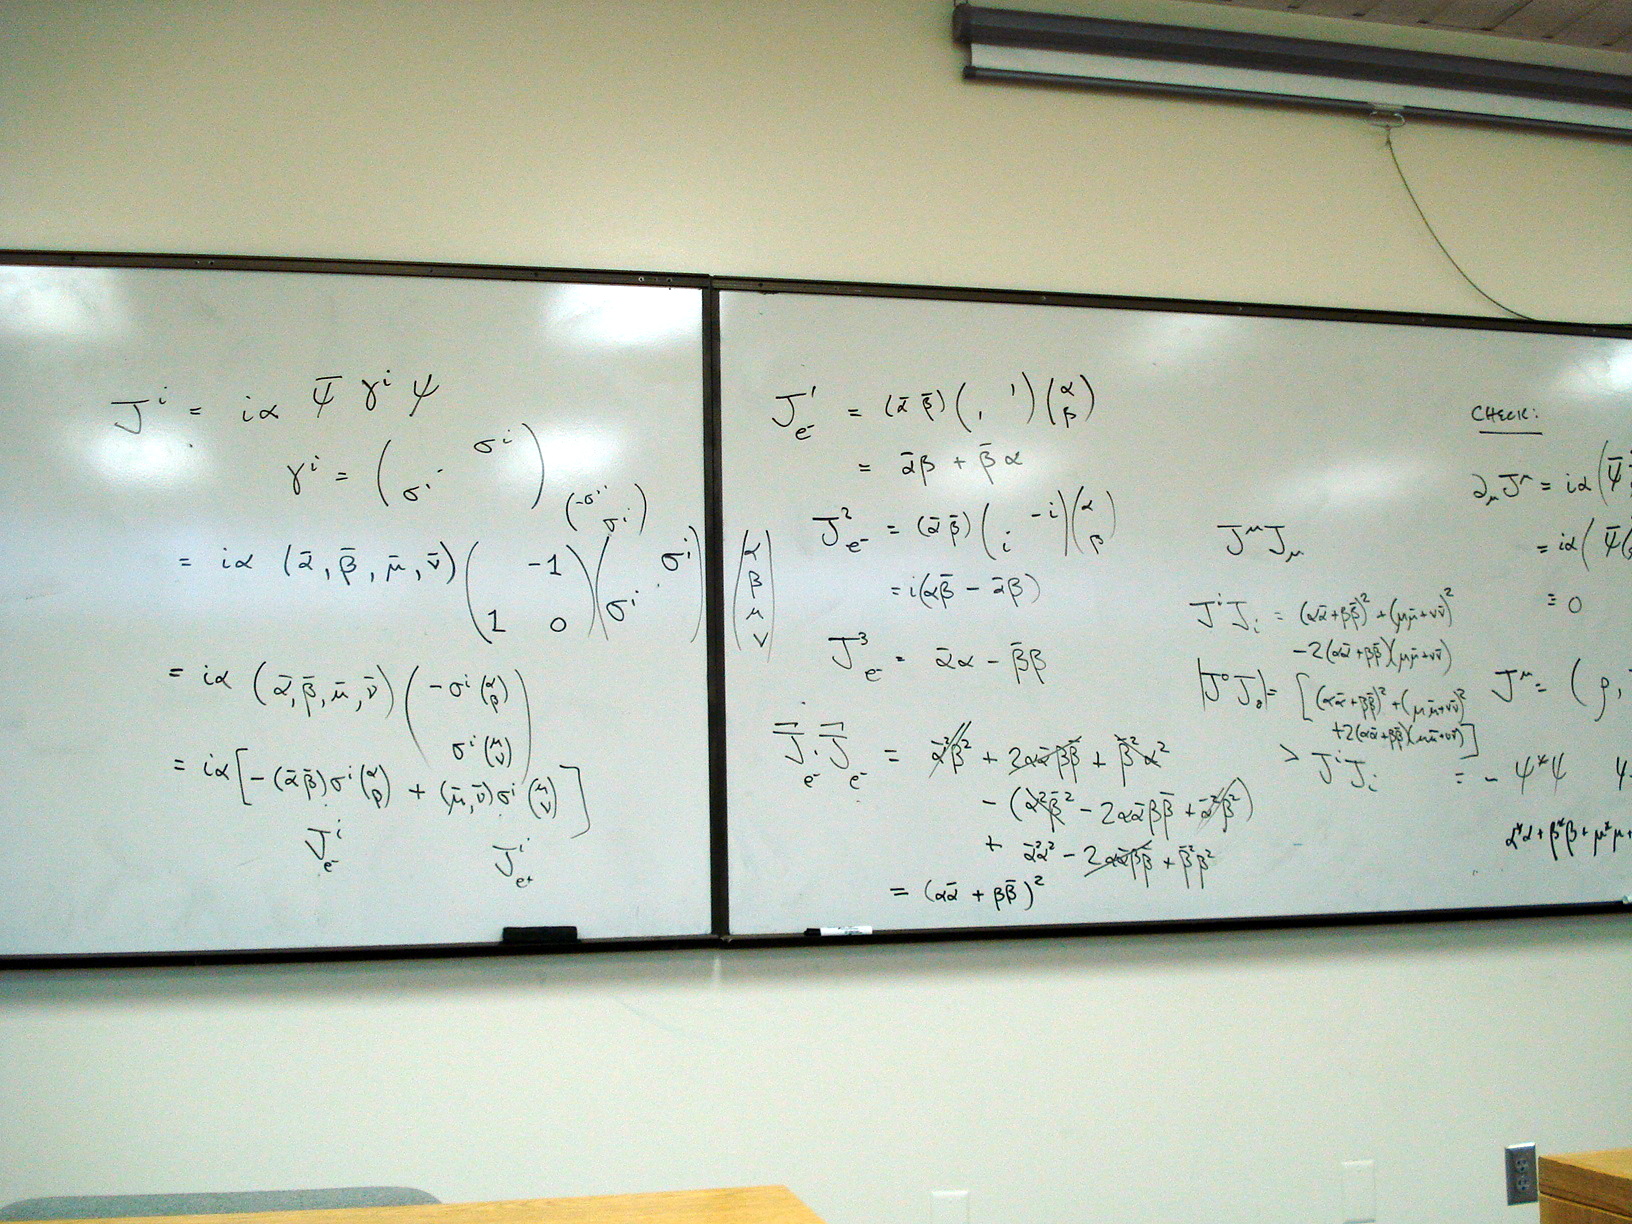 J^i = iα ψ̄ γ^i ψ
γ^i = ( σ^i
σ^i )
( -σ^i
σ^i )
= iα (ᾱ, β̄, μ̄, ν̄) ( -1
1 0 ) ( σ^i
σ^i ) ( α
β
μ
ν )
= iα (ᾱ, β̄, μ̄, ν̄) ( -σ^i (α β)
σ^i (μ ν) )
= iα [ -(ᾱ β̄) σ^i (α β) + (μ̄, ν̄) σ^i (μ ν) ]
J^i_e- J^i_e+
J^1_e- = (ᾱ β̄) ( 1 1 ) (α β)
= ᾱβ + β̄α
J^2_e- = (ᾱ β̄) ( -i
i ) (α β)
= i(αβ̄ - ᾱβ)
J^3_e- = ᾱα - β̄β
J_e- · J_e- = ᾱ²β² + 2αᾱββ̄ + β̄²α²
- (α²β̄² - 2αᾱββ̄ + ᾱ²β²)
+ ᾱ²α² - 2αᾱββ̄ + β̄²β²
= (αᾱ + ββ̄)²
J^μ J_μ
J^i J_i = (αᾱ+ββ̄)² + (μμ̄+νν̄)²
- 2(αᾱ+ββ̄)(μμ̄+νν̄)
|J^0 J_0| = [(αᾱ+ββ̄)² + (μμ̄+νν̄)²
+2(αᾱ+ββ̄)(μμ̄+νν̄)]
> J^i J_i
CHECK:
∂_μ J^μ = iα ( ψ̄
= iα ( ψ̄(
≡ 0
J^μ = ( ρ,
= - ψ*ψ ψ
α*α + β*β + μ*μ +